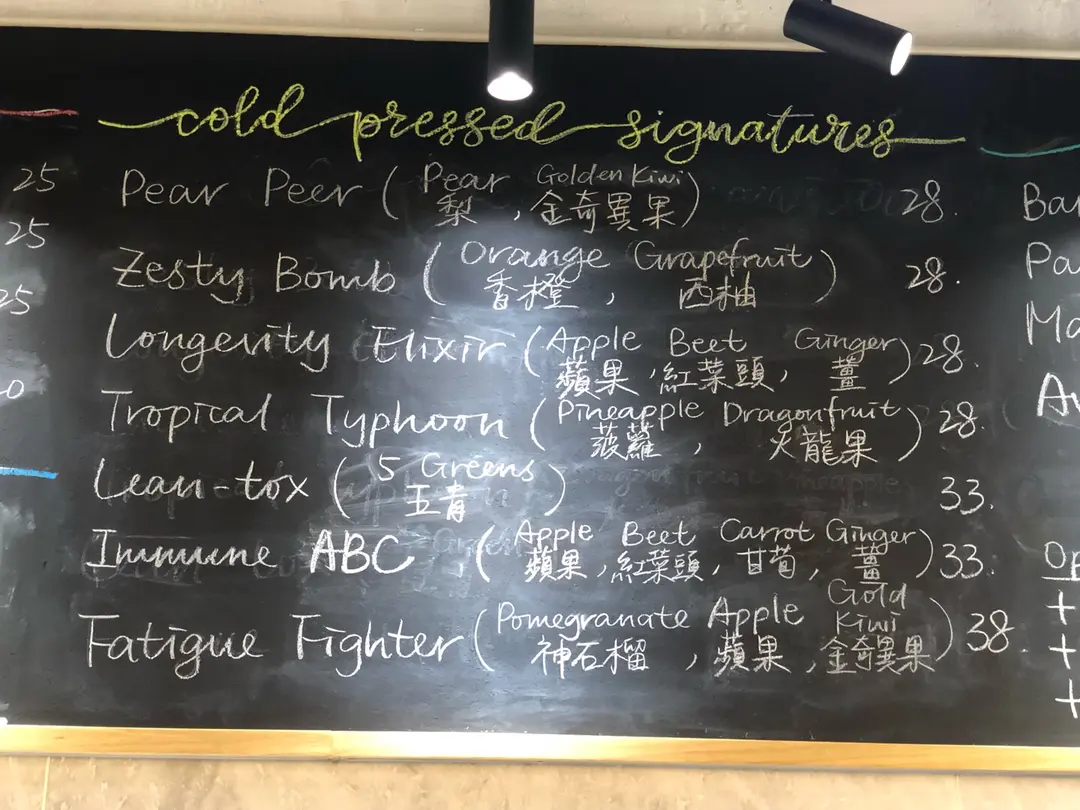 cold pressed signatures
25
Pear Peer ( Pear Golden Kiwi
梨 , 金奇異果) 28.
25
Zesty Bomb ( Orange Grapefruit
香橙 , 西柚 ) 28.
25
Longevity Elixir ( Apple Beet Ginger
蘋果 , 紅葉頭 , 薑 ) 28.
Tropical Typhoon ( Pineapple Dragonfruit
菠蘿 , 火龍果 ) 28.
Lean-tox ( 5 Greens
五青 ) 33.
Immune ABC ( Apple Beet Carrot Ginger
蘋果 , 紅葉頭 , 甘荀 , 薑 ) 33.
Fatigue Fighter ( Pomegranate Apple Gold Kiwi
神石榴 , 蘋果 , 金奇異果 ) 38.